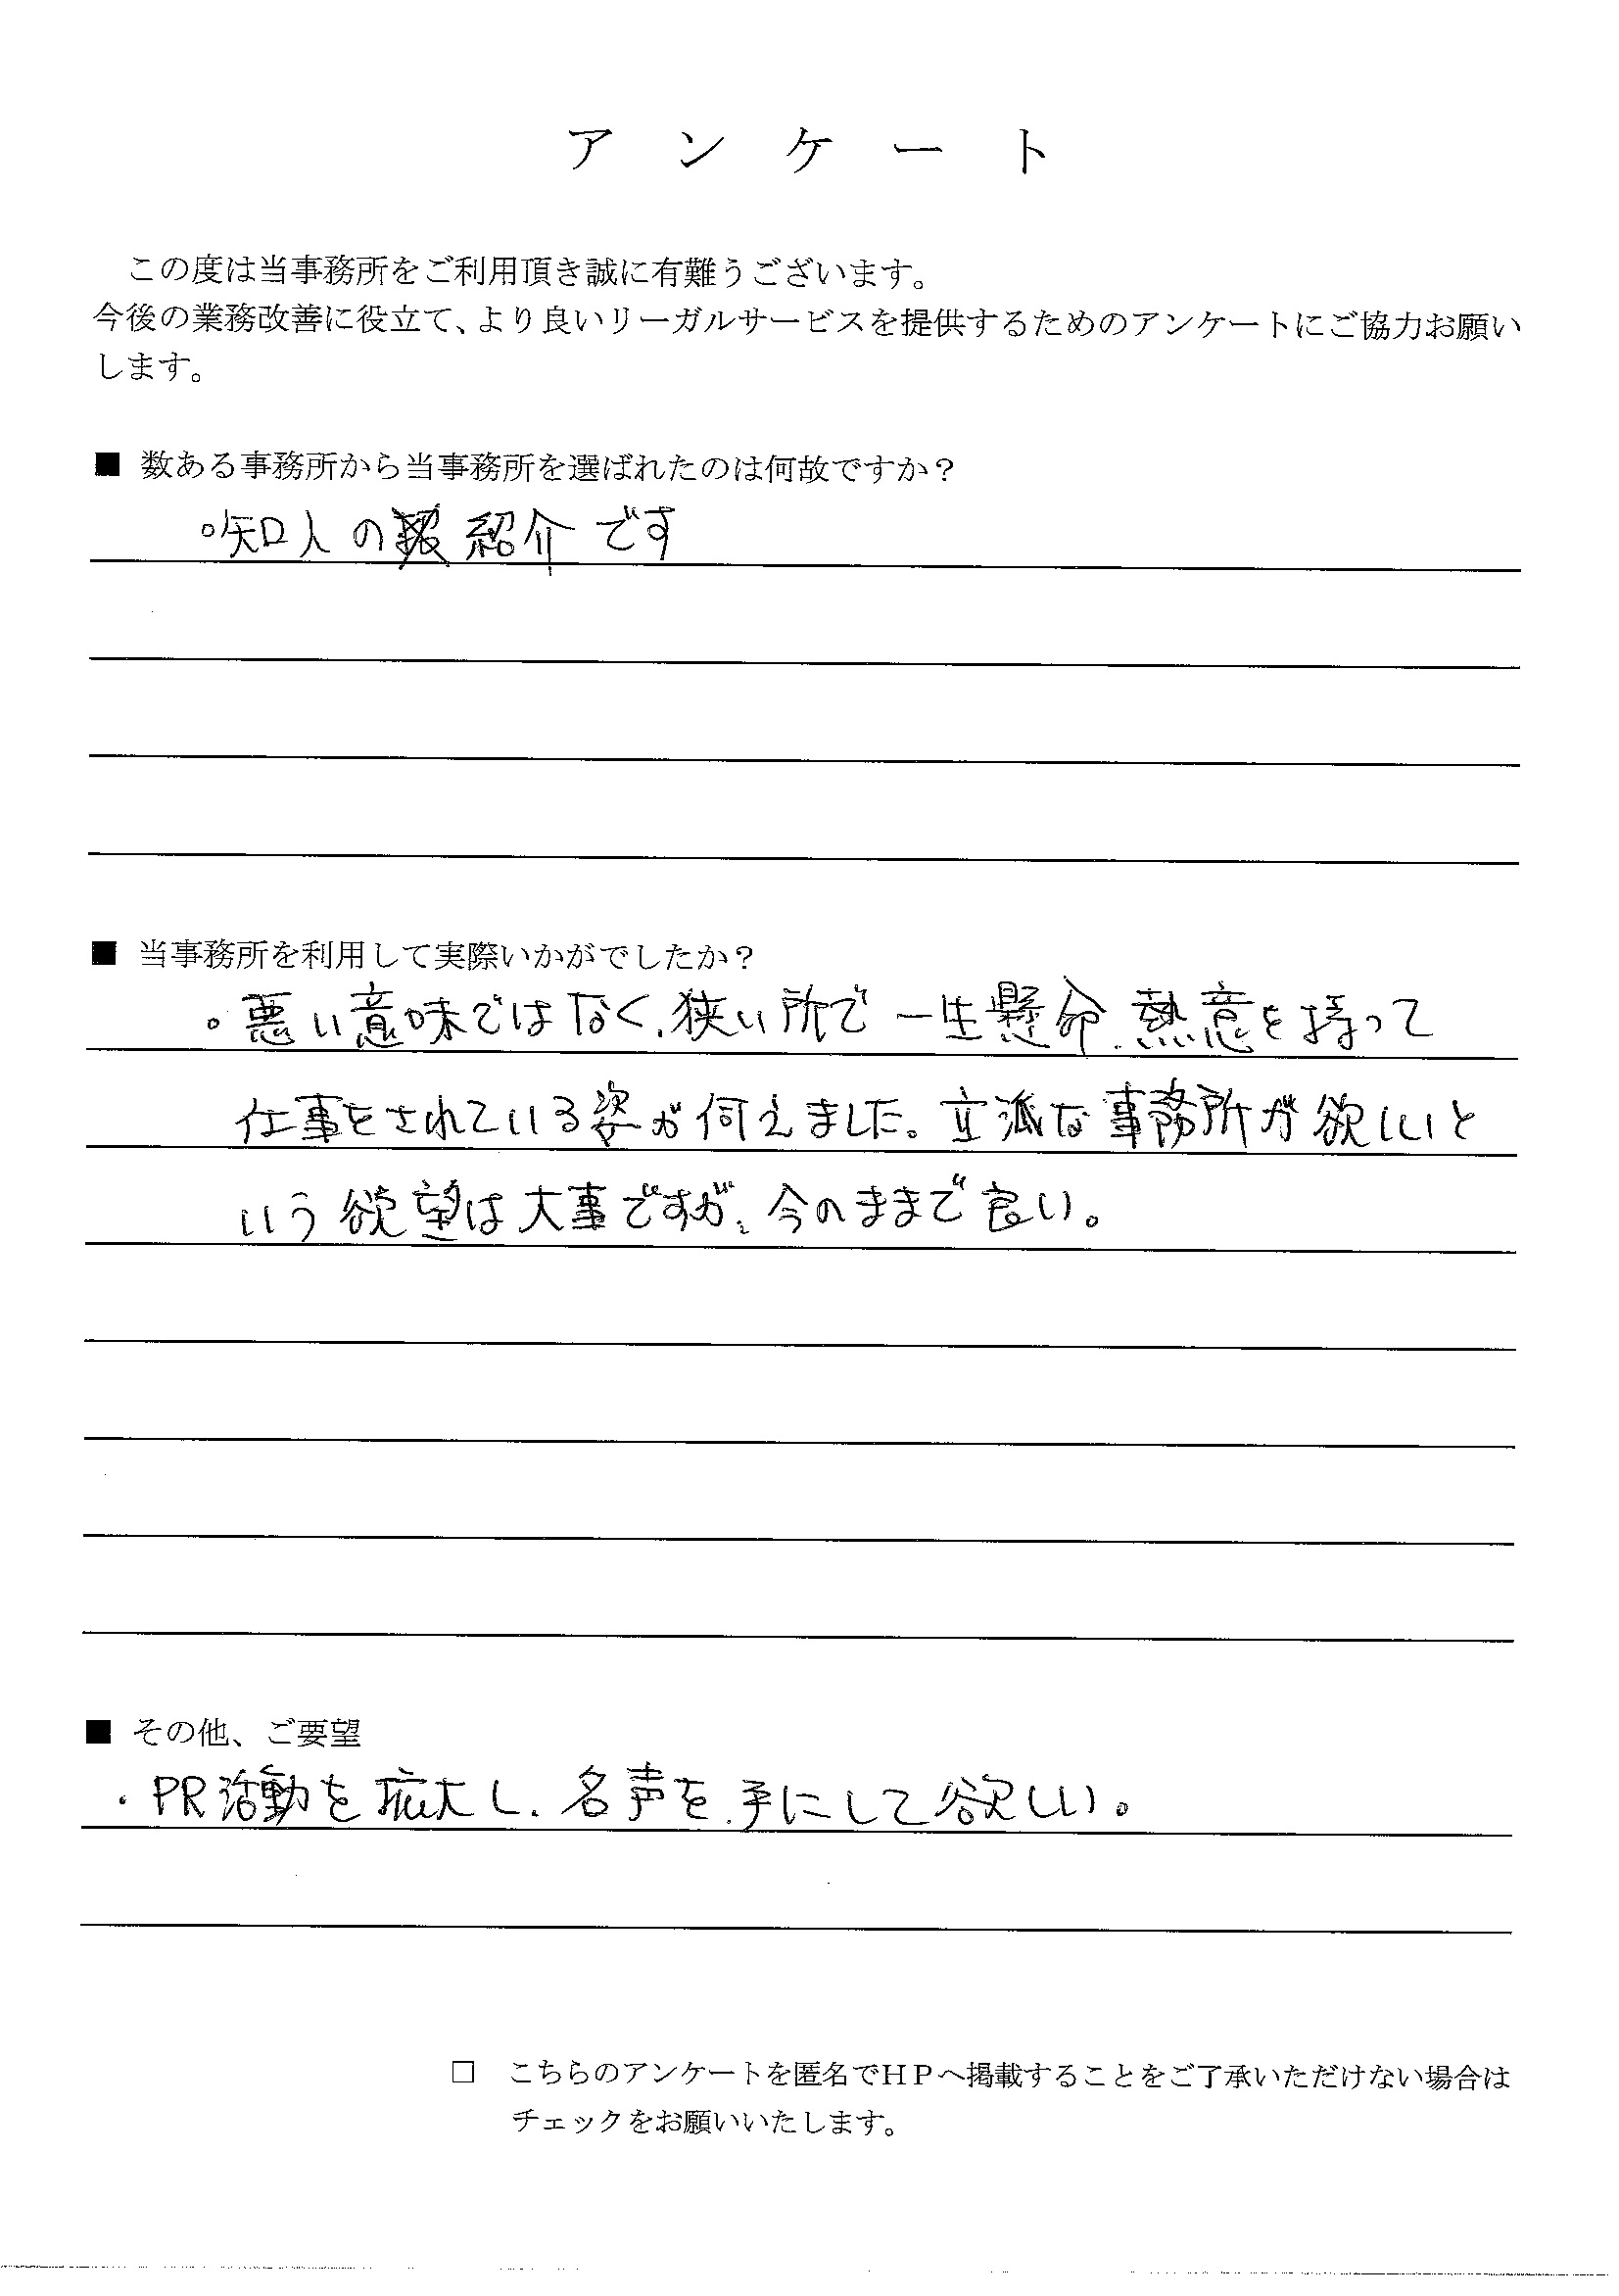 アンケート
この度は当事務所をご利用頂き誠に有難うございます。
今後の業務改善に役立て、より良いリーガルサービスを提供するためのアンケートにご協力お願い
します。
■ 数ある事務所から当事務所を選ばれたのは何故ですか？
。知人の紹介です
■ 当事務所を利用して実際いかがでしたか？
。悪い意味ではなく、狭い所で一生懸命、熱意を持って
仕事をされている姿が伺えました。立派な事務所が欲しいと
いう欲望は大事ですが、今のままで良い。
■ その他、ご要望
・PR活動を拡大し、名声を手にして欲しい。
□ こちらのアンケートを匿名でＨＰへ掲載することをご了承いただけない場合は
チェックをお願いいたします。